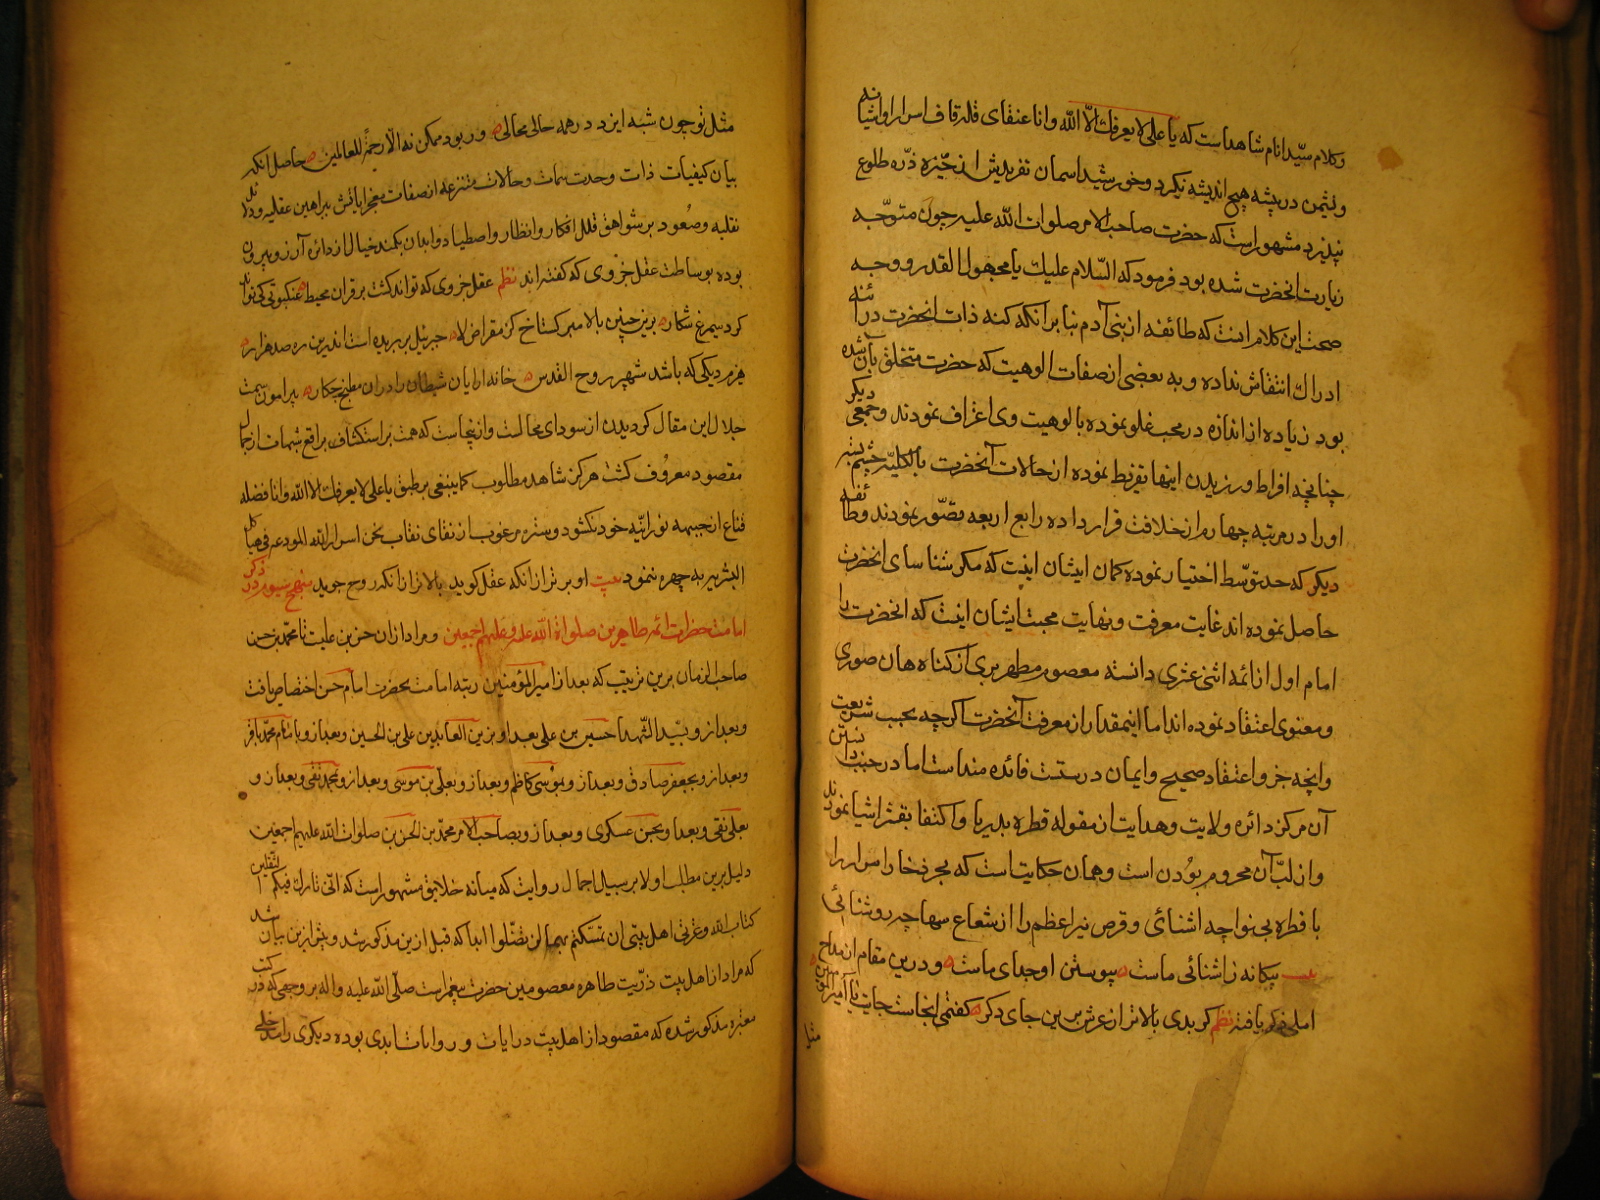 وکلام سیّد انام شاهد است که یا علی لا یعرفک الّا اللّه وانا عنقای قله قاف اسرار اوآشیانه
ونثمن در پشه هیچ اندیشه نکرد وخورشید اسمان تفریدش از حیّزه ذرّه طلوع
نپذیرد مشهور است که حضرت صاحب الامر صلوات اللّه علیه چون متوجّه
زیارت انحضرت شده بود فرمود که السّلام علیک یا مجهول القدر ووجه
صحت این کلام اینست که طائفه از بنی آدم بنا برانکه کنه ذات انحضرت در آئنه
ادراک انتقاش نداده و به بعضی از صفات الوهیت که حضرت متخلق بآن شده
بود زیاده از اندازه در محب غلو نموده بالوهیت وی اعتراف نمودند وجمعی دیکر
چنانچه افراط ورزیدن اینها تفریط نموده از حالات آنحضرت بالکلیّه چشم بسته
اورا در مرتبه چهارم از خلافت قرار داده رابع اربعه تصّور نمودند وطائفه
دیکر که حد توسّط اختیار نموده کمان ایشان اینست که مکر شناسای انحضرت
حاصل نموده اند غایت معرفت ونهایت محبت ایشان اینست که انحضرت را
امام اول از ائمه اثنی عشری دانسته معصوم مطهر بری از کناهان صوری
ومعنوی اعتقاد نموده اند اما اینمقدار از معرفت آنحضرت اکرچه بحسب شریعت
وانچه جزو اعتقاد صحیح وایمان درستست فائده مند است اما در جنب دانستن
آن مرکز دائره ولایت وهدایت از مقوله قطره بدریا واکتفا بقشر اشیا نمودند
واز لبّ آن محروم بوُدن است وهمان حکایتست که بحر ذخار اسرار را
با قطره بی نوا چه اشنائی وقرص نیر اعظم را از شعاع سها چه روشنائی
بیت بیکانه ز اشنائی ماست پیوستن او جدای ماست ودرین مقام از مداح
املی ذکر یافته نظم کر بدی بالاتر از عرش برین جای دکر کفتمی انجاست جایت یا امیر المومنین
مثل
مثل تو چون شبه ایزد در همه حالی محالی ور بود ممکن نه الّا رحمةً للعالمین حاصل انکه
بیان کیفیات ذات وحدت سمات وحالات متنزعه از صفات معجز ایاتش ببراهین عقلیه ودلائل
نقلیه وصُعود بر شواهق قلل افکار وانظار واصطیاد وابدان بکمند خیال از دائره آرزو بیرون
بوده بوساطت عقل جزوی که کفته اند نظم عقل جزوی که تواند کشت بر قران محیط عنکبوتی کی تواند
کرد سیمرغ شکار برین چنین بالا مبر کستاخ کز مقراض لا جبرئیل پر بریده است اندرین ره صد هزار
هیزم دیکی که باشد شهپر روح القدس خانه ارایان شیطان را دران مطبخ چکار پیرامون سمت
جلال این مقال کردیدن از سودای محالست وازینجاست که همت بر استکشاف براقع شبهات از جمال
مقصود معروُف کشت هرکز شاهد مطلوب کما ینبغی بر طبق یا علی لا یعرفک الا اللّه وانا فضله
قناع از جبهه نورانیّه خود نکشود وستره مرغوب از نقای نقاب نحن اسرار اللّه المودعه فی هیاکل
البشریه به چهره ننمود بیت او برتر از انکه عقل کوید بالاتر از انکه روح جوید منهج سیوم در ذکر
امامت حضرات ائمه طاهرین صلوات اللّه علیه وعلیهم اجمعین ومراد از ان حسن بن علیست تا محمّد بن حسن
صاحب الزمان برین ترتیب که بعد از امیر المؤمنین رتبه امامت بحضرت امام حسن اختصاص یافت
وبعد از و بسّید الشّهدا حسین بن علی بعد او بزین العابدین علی بن الحسین وبعد از و با مام محمّد باقر
وبعد از و بجعفر صادق وبعد از و بموُسی کاظم وبعد از و بعلی بن موسی وبعد از و بمحمد تقی وبعد از و
بعلی نقی وبعد او بحسن عسکری وبعد از و بصاحب الامر محمد بن الحسن بن صلوات اللّه علیهم اجمعین
دلیل برین مطلب اولا بر سبیل اجمال روایت که میانه خلایق مشهور است که انّی تارک فیکم الثّقلین
کتاب اللّه وعترتی اهل بیتی ان تمسّکتم بهما لن تضّلوا ابدا که قبل ازین مذکور شد وپیش ازین بیان شد
که مراد از اهل بیت ذرّیت طاهره معصومین حضرت پیغمبراست صلّی اللّه علیه واله بر وجهی که در کتب
معتبره مذکور شده که مقصود از اهل بیت در ایات و روایات ابدی بوده دیکری را مدخلی